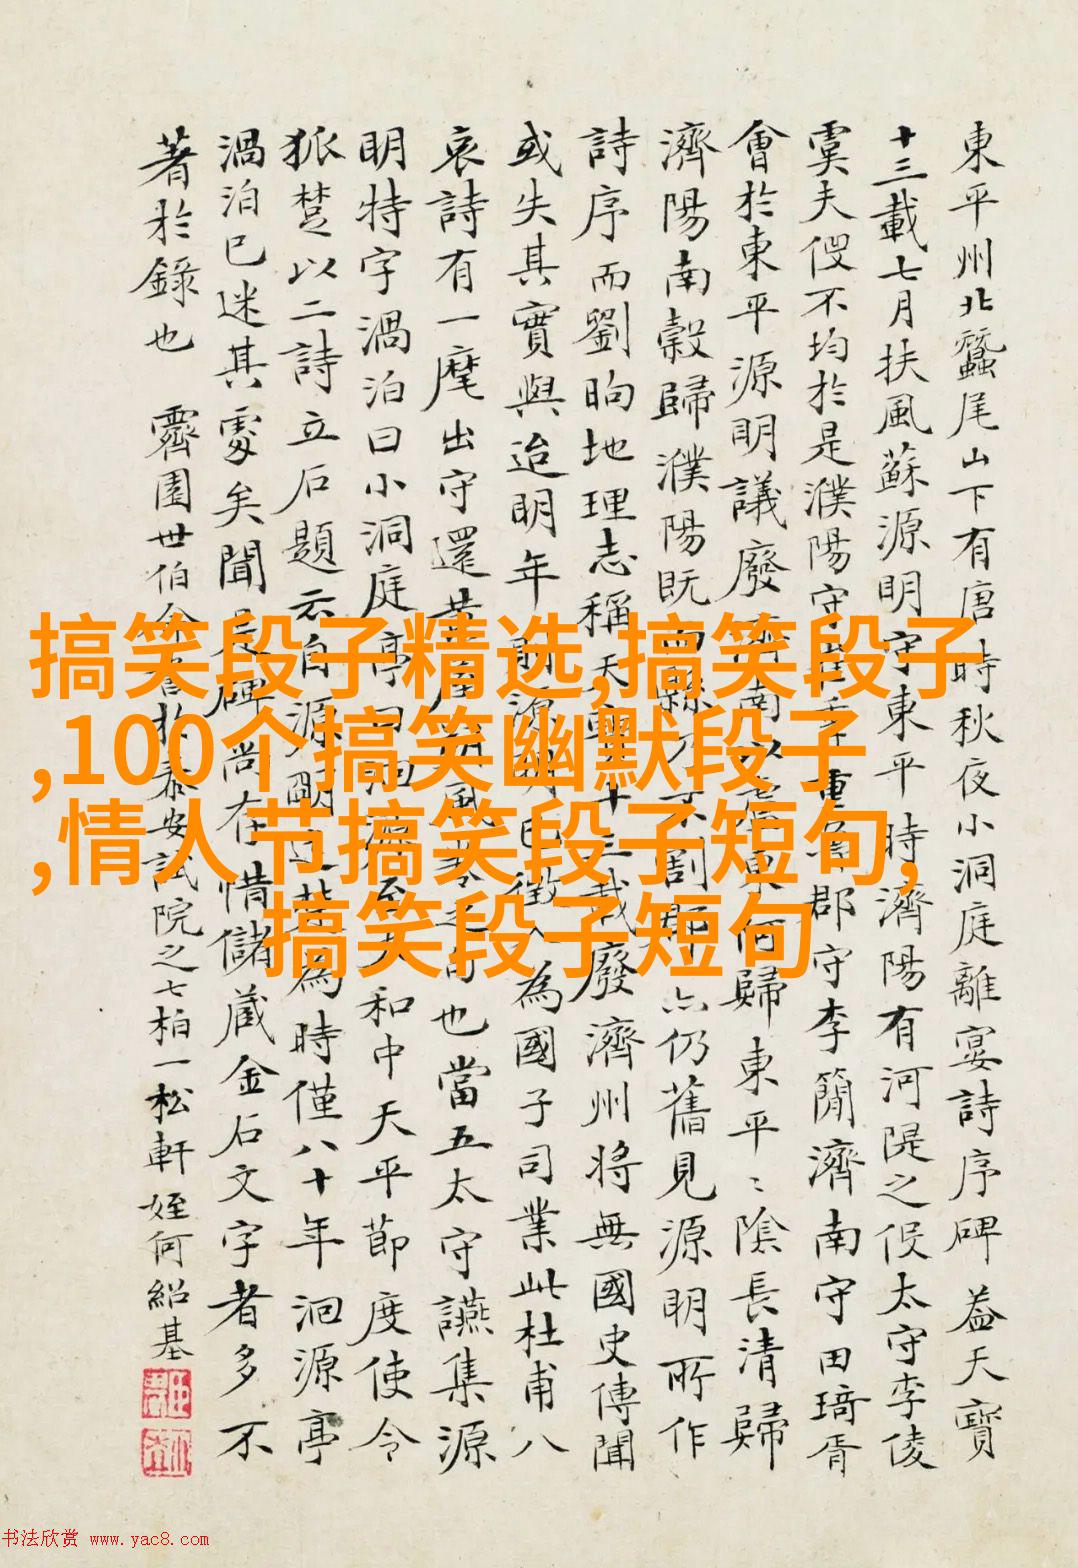 東平州北蠶尾山下有唐時秋夜小洞庭離宴詩序碑 蓋天寶
十三載七月扶風蘇源明守東平時濟陽有河隄之役太守李倰
虞夫役不均於是濮陽守重魯郡守李簡濟南守田琦胥
會於東平源明議廢濟南以東何歸東平〻陰長清歸
濟陽南穀歸濮陽既不割仍舊見源明所作
詩序而劉昫地理志稱天寶十三載廢濟州將無國史傳聞
或失其實與迨明年源明徵為國子司業此杜甫八
哀詩有一麾出守還黃屋朔風也當五太守讌集源
明特字渦泊曰小洞庭亭曰洄源至太和中天平節度使令
狐楚以二詩立石題云自源明為時僅八十年洄源亭
渦泊已迷其處矣聞碑尚在惜儲蔵金石文字者多不
著於錄也 霽園世伯泰安試院之七柏一松軒 姪何紹基
搞笑段子精选,搞笑段子
,100个搞笑幽默段子
,情人节搞笑段子短句,
搞笑段子短句
书法欣赏 www.yac8.com